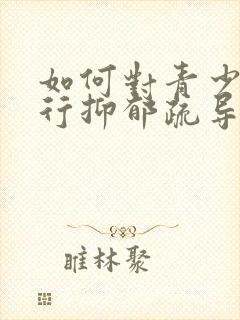 如何對青少
行抑郁疏导
睢林聚